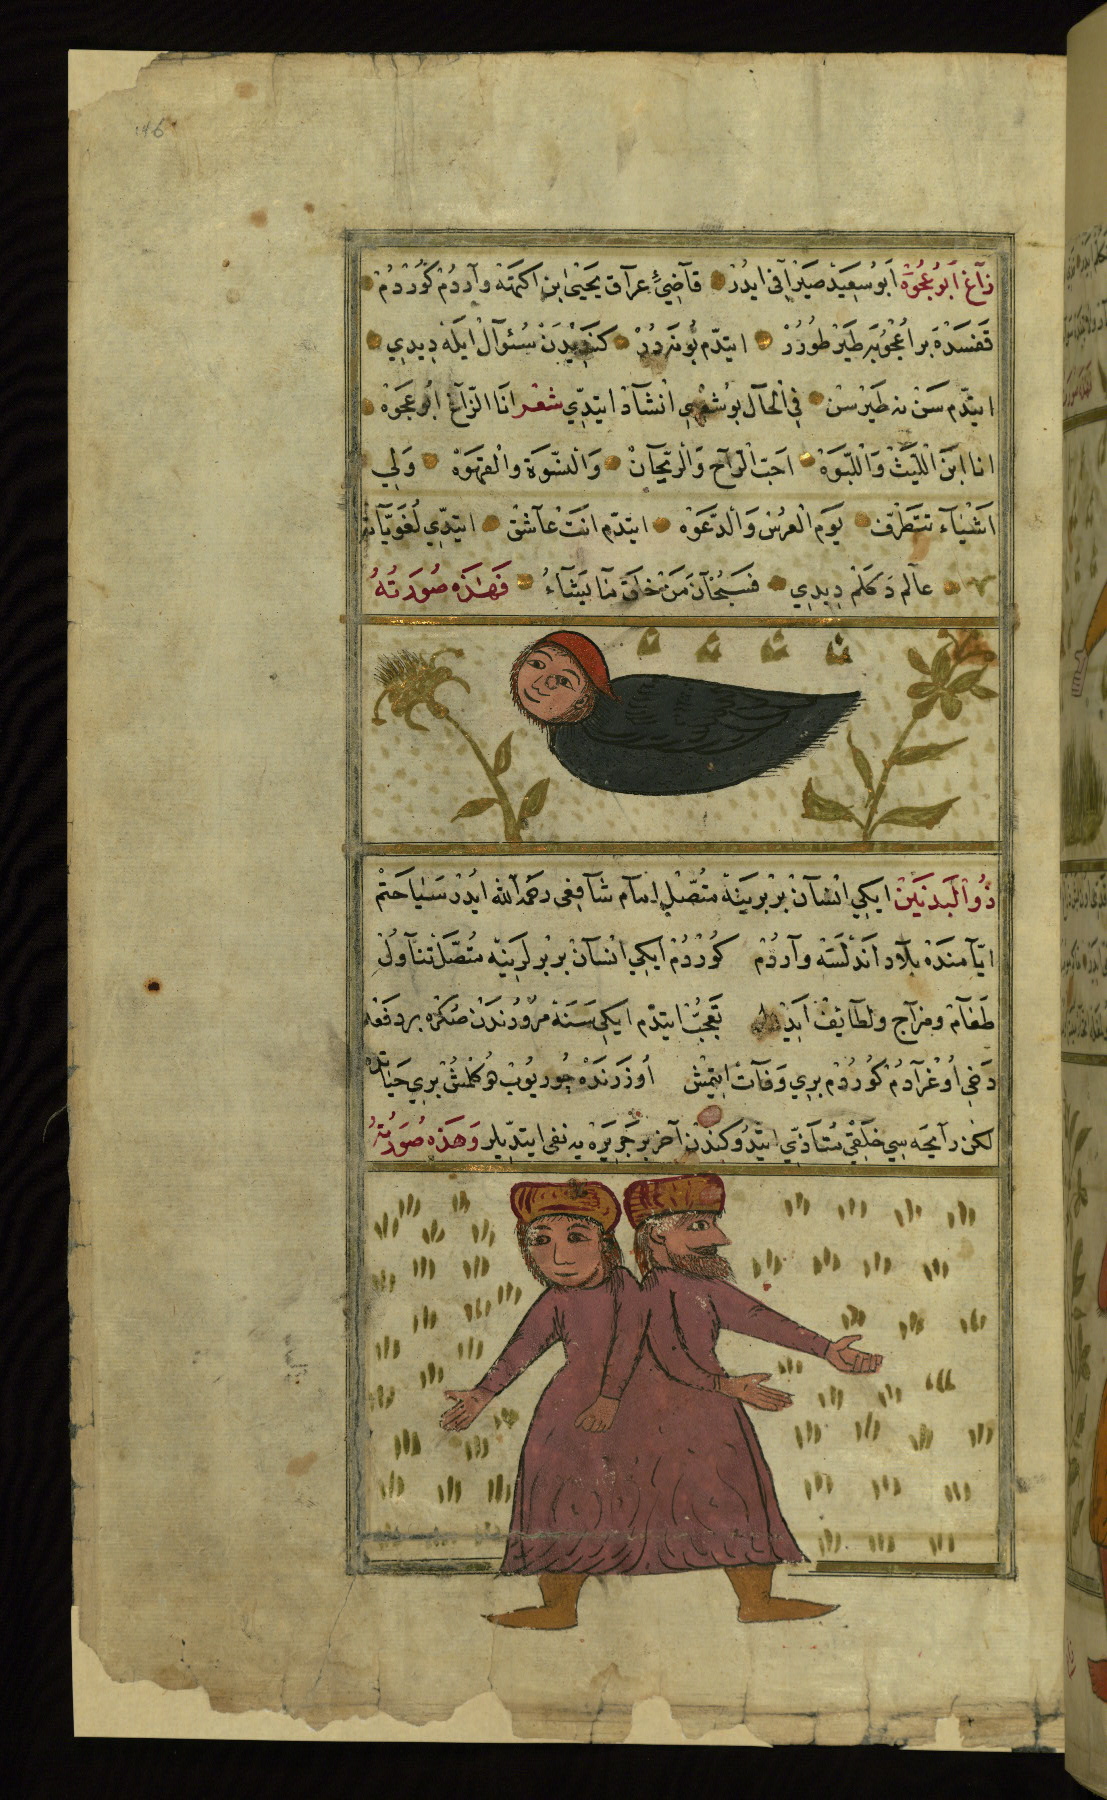 146
زاغ ابو عجوة ابو سعيد صيرافى ايدر قاضئ عراق يحيى بن اكمته واردم كوردم
قفسده بر اعجوبه طير طورر ايتدم بو نه در كنديدن سئوال ايله ديدى
ايتدم سن نه طير سن فى الحال بو شعرى انشاد ايتدى شعر انا الزاغ ابو عجوه
انا ابن الليث واللبوه احب الراح والريحان والنسوة والقهوه ولى
اشياء تستطرف يوم العرس والدعوه ايتدم انت عاشق ايتدى لغوياته
عالم دكلم ديدى فسبحان من خلق ما يشاء فهذه صورته
ذو البدنين ايكى انسان بربرينه متصل امام شافعى رحمه الله ايدر سياحتم
ايامنده بلاد اندلسته واردم كوردم ايكى انسان بربرلرينه متصل تناول
طعام ومزاج ولطايف تعجب ايتدم ايكى سنه مروردندن صكره بر دفعه
دخى اوغرادم كوردم برى وفات ايتمش اوزرنده چوريوب هر كلمش برى حياتده
لكن رايحه سى خلقى متاذى ايتدوكندن آخر بر جزيره يه نفى ايتديلر وهذه صورته